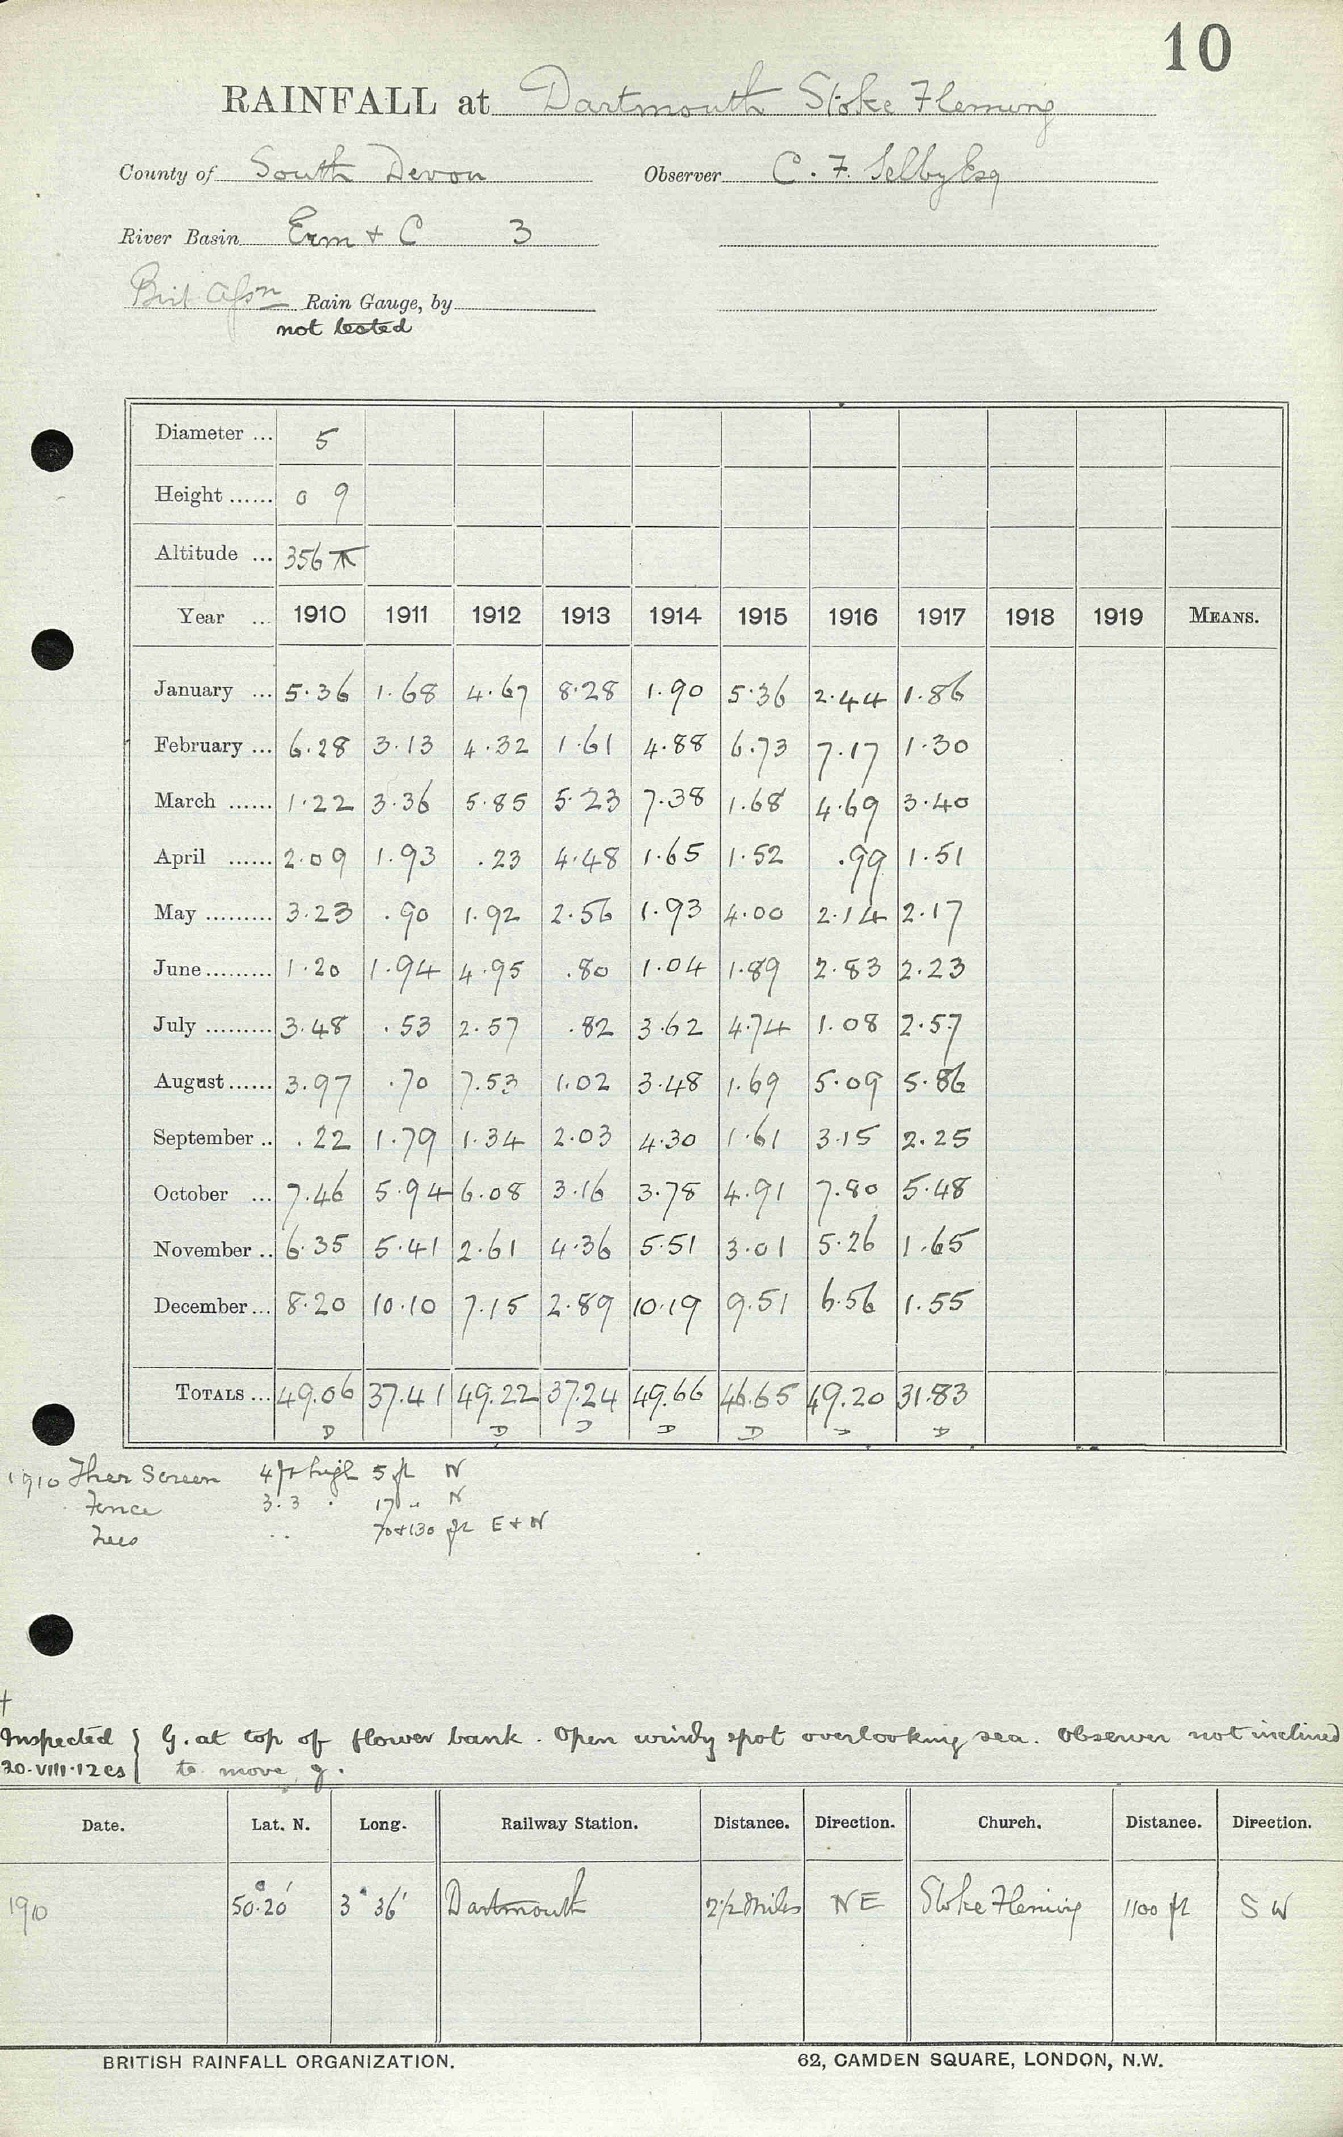 10
RAINFALL at Dartmouth Stoke Fleming
County of South Devon Observer C. F. Selby Esq
River Basin Erm + C 3
Brit Assn Rain Gauge, by
not tested
Diameter ... 5
Height ...... 0 9
Altitude ... 356
Year ... 1910 1911 1912 1913 1914 1915 1916 1917 1918 1919 MEANS.
January ... 5.36 1.68 4.67 8.28 1.90 5.36 2.44 1.86
February ... 6.28 3.13 4.32 1.61 4.88 6.73 7.17 1.30
March ...... 1.22 3.36 5.85 5.23 7.38 1.68 4.69 3.40
April ...... 2.09 1.93 .23 4.48 1.65 1.52 .99 1.51
May ......... 3.23 .90 1.92 2.56 1.93 4.00 2.14 2.17
June ......... 1.20 1.94 4.95 .80 1.04 1.89 2.83 2.23
July ......... 3.48 .53 2.57 .82 3.62 4.74 1.08 2.57
August ...... 3.97 .70 7.53 1.02 3.48 1.69 5.09 5.86
September .. .22 1.79 1.34 2.03 4.30 1.61 3.15 2.25
October ... 7.46 5.94 6.08 3.16 3.78 4.91 7.80 5.48
November .. 6.35 5.41 2.61 4.36 5.51 3.01 5.26 1.65
December ... 8.20 10.10 7.15 2.89 10.19 9.51 6.56 1.55
TOTALS ... 49.06 37.41 49.22 37.24 49.66 46.65 49.20 31.83
D D D D D D D
1910 Ther Screen 4 ft high 5 ft N
Fence 3.3 " 17 " N
Trees .. 70+130 ft E + N
†
Inspected } G. at top of flower bank. Open windy spot overlooking sea. Observer not inclined
20.VIII.12 CS } to move g.
Date. Lat. N. Long. Railway Station. Distance. Direction. Church. Distance. Direction.
1910 50° 20' 3° 36' Dartmouth 2½ Miles NE Stoke Fleming 1100 ft SW
BRITISH RAINFALL ORGANIZATION. 62, CAMDEN SQUARE, LONDON, N.W.